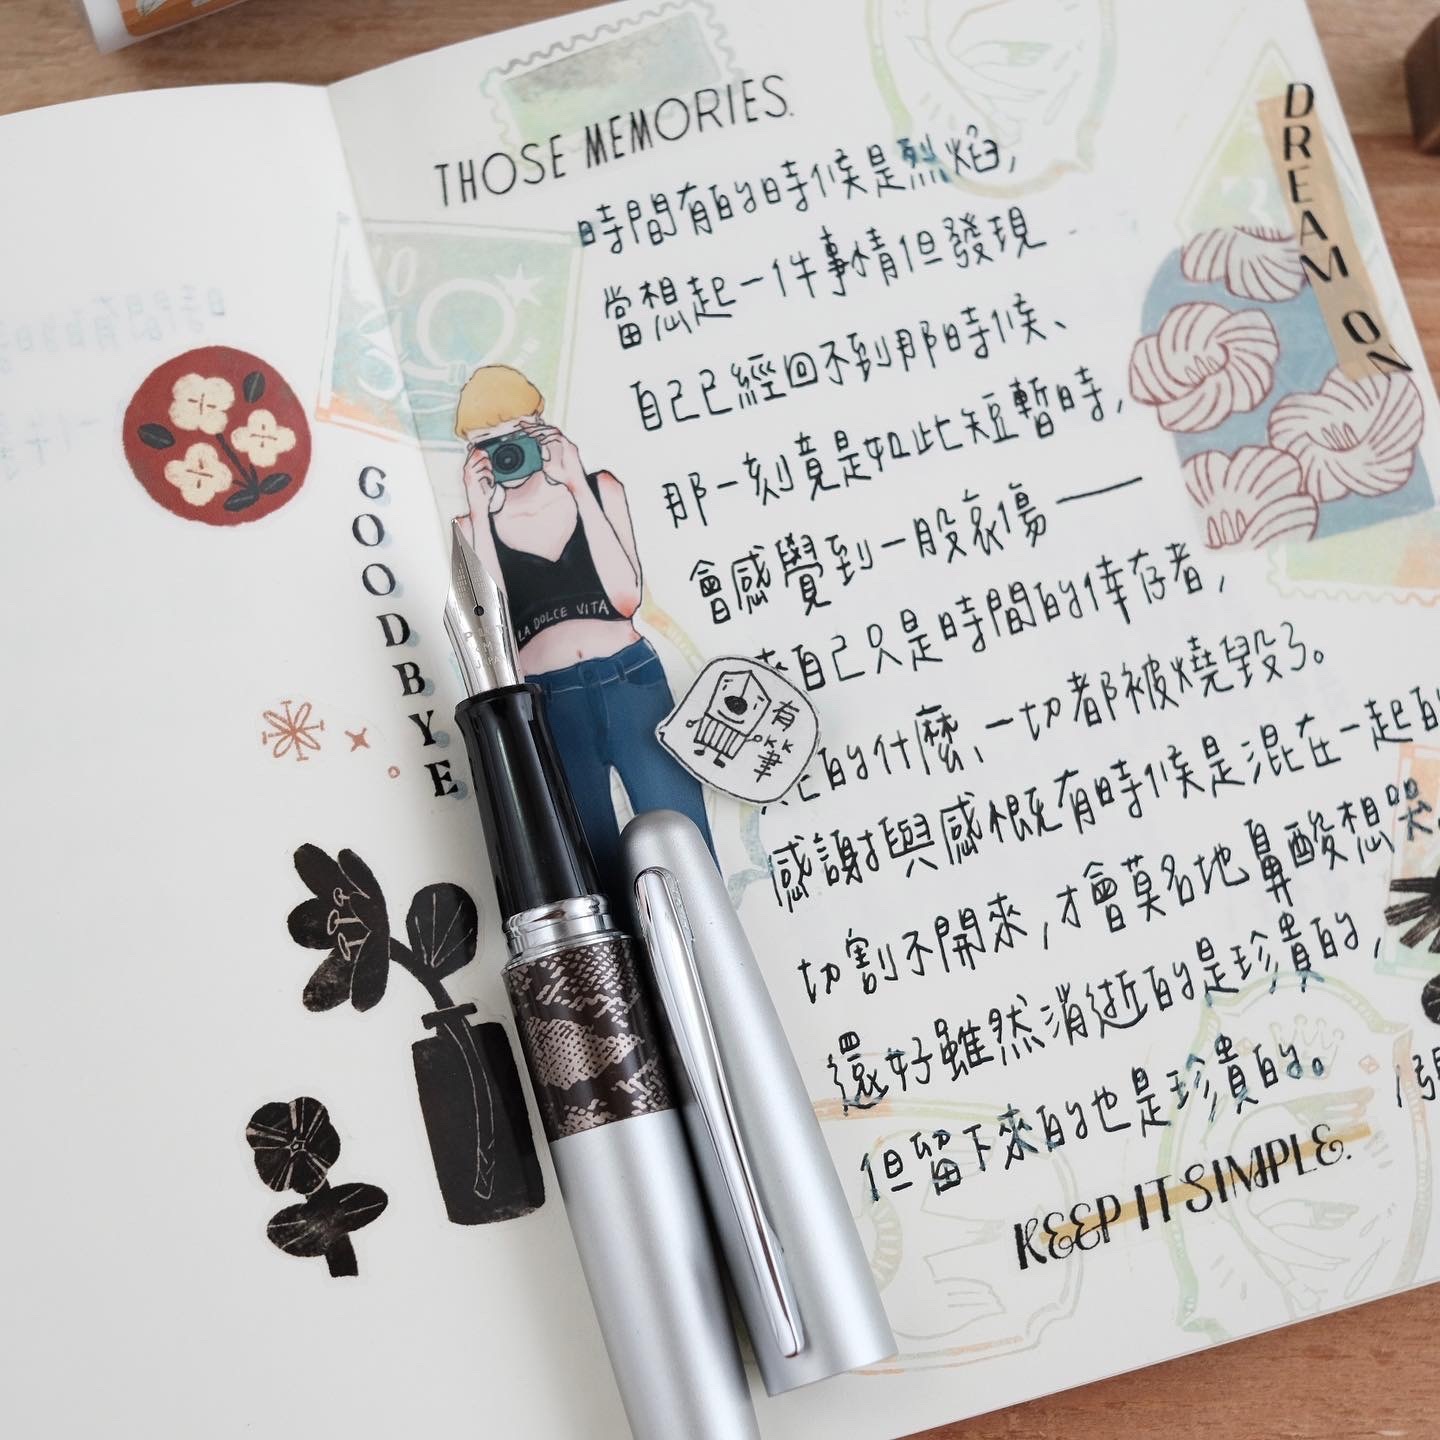 THOSE MEMORIES.
時間有的時候是烈焰,
當想起一件事情但發現
自己已經回不到那時候、
那一刻竟是如此短暫時,
會感覺到一股哀傷——
來自己只是時間的倖存者,
的什麼、一切都被燒毀了。
感謝與感慨有時候是混在一起的
切割不開來,才會莫名地鼻酸想哭。
還好雖然消逝的是珍貴的,
但留下來的也是珍貴的。
KEEP IT SIMPLE.
DREAM ON
GOODBYE
LA DOLCE VITA
有KK筆
PILOT
JAPAN